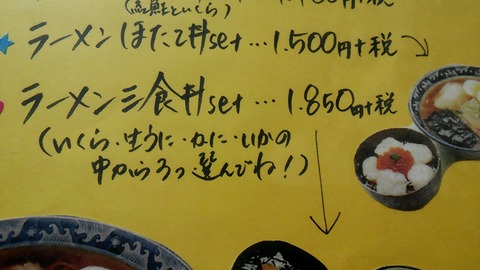 (紅鮭といくら)
ラーメンほたて丼set…1.500円+税
ラーメン三食丼set…1.850円+税
(いくら・生うに・かに・いかの
中から3つ選んでね!)